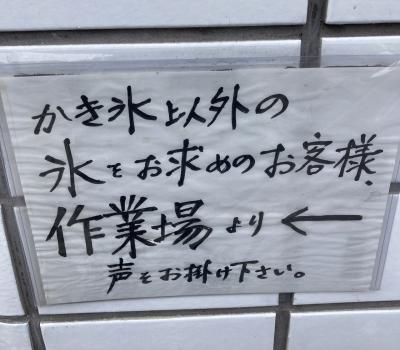 かき氷以外の
氷をお求めのお客様、
作業場より ←
声をお掛け下さい。